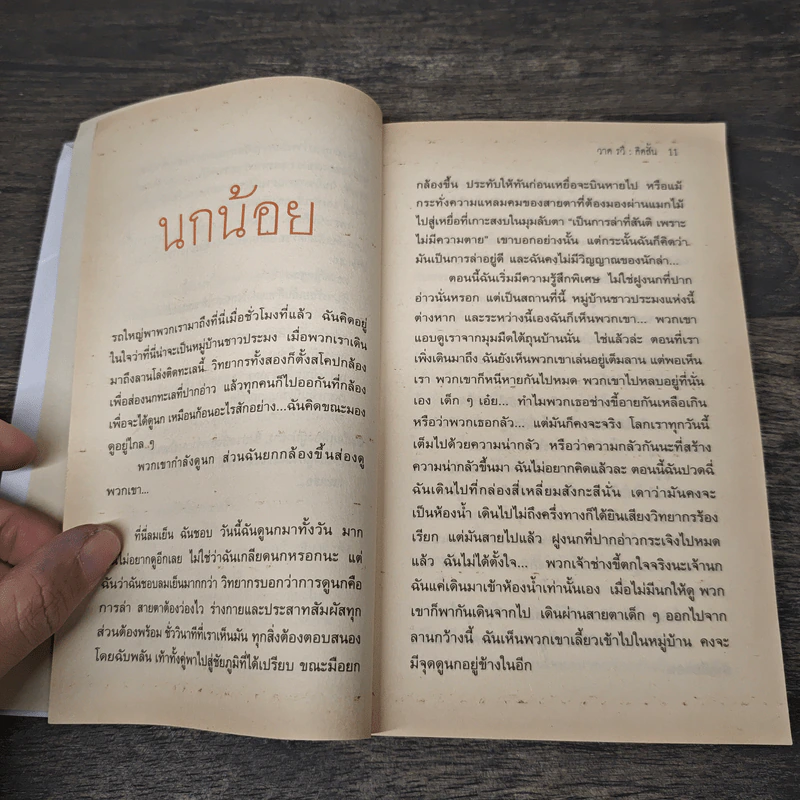 นกน้อย
รถใหญ่พาพวกเรามาถึงที่นี่เมื่อชั่วโมงที่แล้ว ฉันคิดอยู่
ในใจว่าที่นี่น่าจะเป็นหมู่บ้านชาวประมง เมื่อพวกเราเดิน
มาถึงลานโล่งติดทะเลนี้ วิทยากรทั้งสองก็ตั้งสโคปกล้อง
เพื่อส่องนกทะเลที่ปากอ่าว แล้วทุกคนก็ไปออกันที่กล้อง
เพื่อจะได้ดูนก เหมือนก้อนอะไรสักอย่าง...ฉันคิดขณะมอง
ดูอยู่ไกล ๆ
พวกเขากำลังดูนก ส่วนฉันยกกล้องขึ้นส่องดู
พวกเขา...
ที่นี่ลมเย็น ฉันชอบ วันนี้ฉันดูนกมาทั้งวัน มาก
ไม่อยากดูอีกเลย ไม่ใช่ว่าฉันเกลียดนกหรอกนะ แต่
ฉันว่าฉันชอบลมเย็นมากกว่า วิทยากรบอกว่าการดูนกคือ
การล่า สายตาต้องว่องไว ร่างกายและประสาทสัมผัสทุก
ส่วนต้องพร้อม ชั่ววินาทีที่เราเห็นมัน ทุกสิ่งต้องตอบสนอง
โดยฉับพลัน เท้าทั้งคู่พาไปสู่ชัยภูมิที่ได้เปรียบ ขณะมือยก
วาด รวี : คิดชั้น 11
กล้องขึ้น ประทับให้ทันก่อนเหยื่อจะบินหายไป หรือแม้
กระทั่งความแหลมคมของสายตาที่ต้องมองผ่านแมกไม้
ไปสู่เหยื่อที่เกาะสงบในมุมลับตา "เป็นการล่าที่สันติ เพราะ
ไม่มีความตาย" เขาบอกอย่างนั้น แต่กระนั้นฉันก็คิดว่า
มันเป็นการล่าอยู่ดี และฉันคงไม่มีวิญญาณของนักล่า...
ตอนนี้ฉันเริ่มมีความรู้สึกพิเศษ ไม่ใช่ฝูงนกที่ปาก
อ่าวนั่นหรอก แต่เป็นสถานที่นี้ หมู่บ้านชาวประมงแห่งนี้
ต่างหาก และระหว่างนี้เองฉันก็เห็นพวกเขา... พวกเขา
แอบดูเราจากมุมมืดใต้ถุนบ้านนั่น ใช่แล้วล่ะ ตอนที่เรา
เพิ่งเดินมาถึง ฉันยังเห็นพวกเขาเล่นอยู่เต็มลาน แต่พอเห็น
เรา พวกเขาก็หนีหายกันไปหมด พวกเขาไปหลบอยู่ที่นั่น
เอง เด็ก ๆ เอ๋ย... ทำไมพวกเธอช่างขี้อายกันเหลือเกิน
หรือว่าพวกเธอกลัว... แต่มันก็คงจะจริง โลกเราทุกวันนี้
เต็มไปด้วยความน่ากลัว หรือว่าความกลัวกันนะที่สร้าง
ความน่ากลัวขึ้นมา ฉันไม่อยากคิดแล้วละ ตอนนี้ฉันปวดฉี่
ฉันเดินไปที่กล่องสี่เหลี่ยมสังกะสีนั่น เดาว่ามันคงจะ
เป็นห้องน้ำ เดินไปไม่ถึงครึ่งทางก็ได้ยินเสียงวิทยากรร้อง
เรียก แต่มันสายไปแล้ว ฝูงนกที่ปากอ่าวกระเจิงไปหมด
แล้ว ฉันไม่ได้ตั้งใจ... พวกเจ้าช่างขี้ตกใจจริงนะเจ้านก
ฉันแค่เดินมาเข้าห้องน้ำเท่านั้นเอง เมื่อไม่มีนกให้ดู พวก
เขาก็พากันเดินจากไป เดินผ่านสายตาเด็ก ๆ ออกไปจาก
ลานกว้างนี้ ฉันเห็นพวกเขาเลี้ยวเข้าไปในหมู่บ้าน คงจะ
มีจุดดูนกอยู่ข้างในอีก